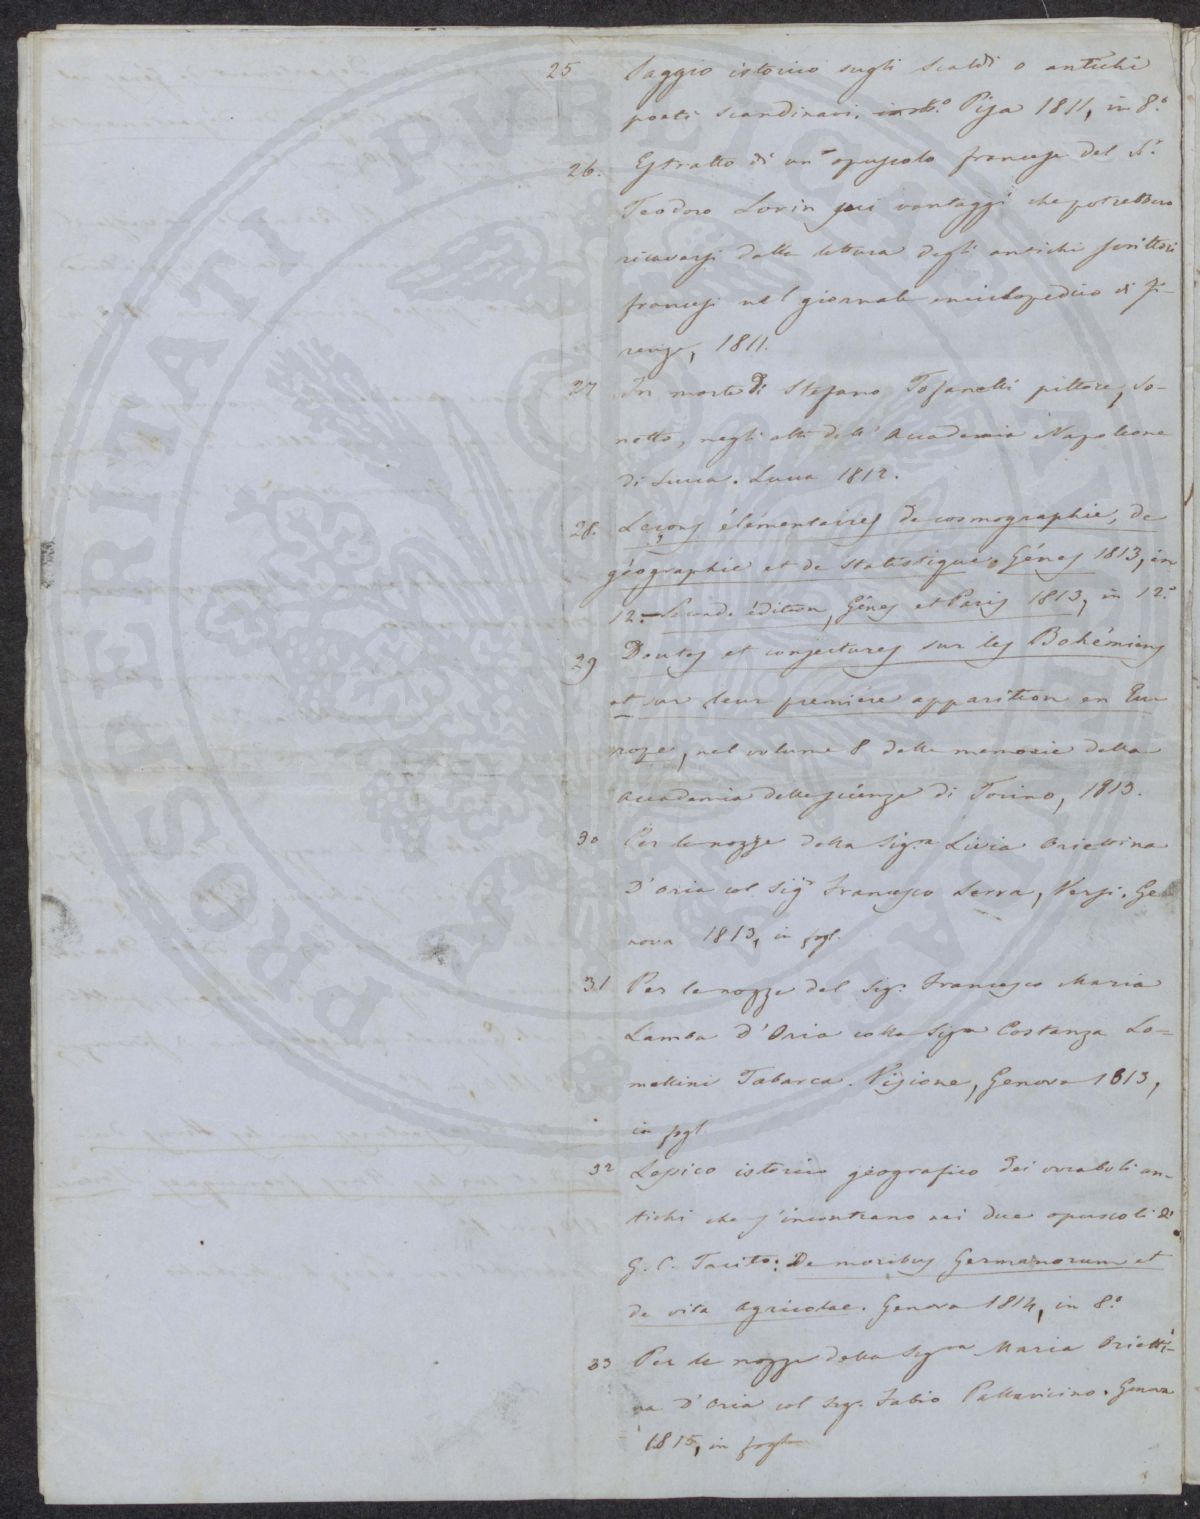 25 Saggio istorico sugli Scaldi o antichi
poeti scandinavi. Pisa 1811, in 8.°
26. Estratto di un opuscolo francese del S.r
Teodoro Lorin sui vantaggi che potrebbero
ricavarsi dalla lettura degli antichi scrittori
francesi nel giornale enciclopedico di Fi-
renze, 1811.
27 In morte di Stefano Tofanelli pittore, so-
netto, negli atti dell' Accademia Napoleone
di Lucca. Lucca 1812.
28. Leçons élémentaires de cosmographie, de
géographie et de statistique, Gênes 1813, in
12.° Second. édition, Gênes et Paris 1813, in 12.°
29 Doutes et conjectures sur les Bohémiens
et sur leur première apparition en Eu
rope, nel volume 8 delle memorie della
Accademia delle scienze di Torino, 1813.
30 Per le nozze della Sig.ra Livia Oriettina
D'Oria col Sig.r Francesco Serra, Versi. Ge
nova 1813, in fogl.
31 Per le nozze del Sig.r Francesco Maria
Lamba D'Oria colla Sig.ra Costanza Lo=
mellini Tabarca. Visione, Genova 1813,
in fogl.
32 Lessico istorico geografico dei vocaboli an-
tichi che s'incontrano nei due opuscoli di
G. C. Tacito: De moribus Germanorum et
de vita Agricolae. Genova 1814, in 8.°
33 Per le nozze della Sig.ra Maria Orietti-
na D'Oria col Sig.r Fabio Pallavicino. Genova
1815, in fogl.
PROSPERITATI PVBLICAE